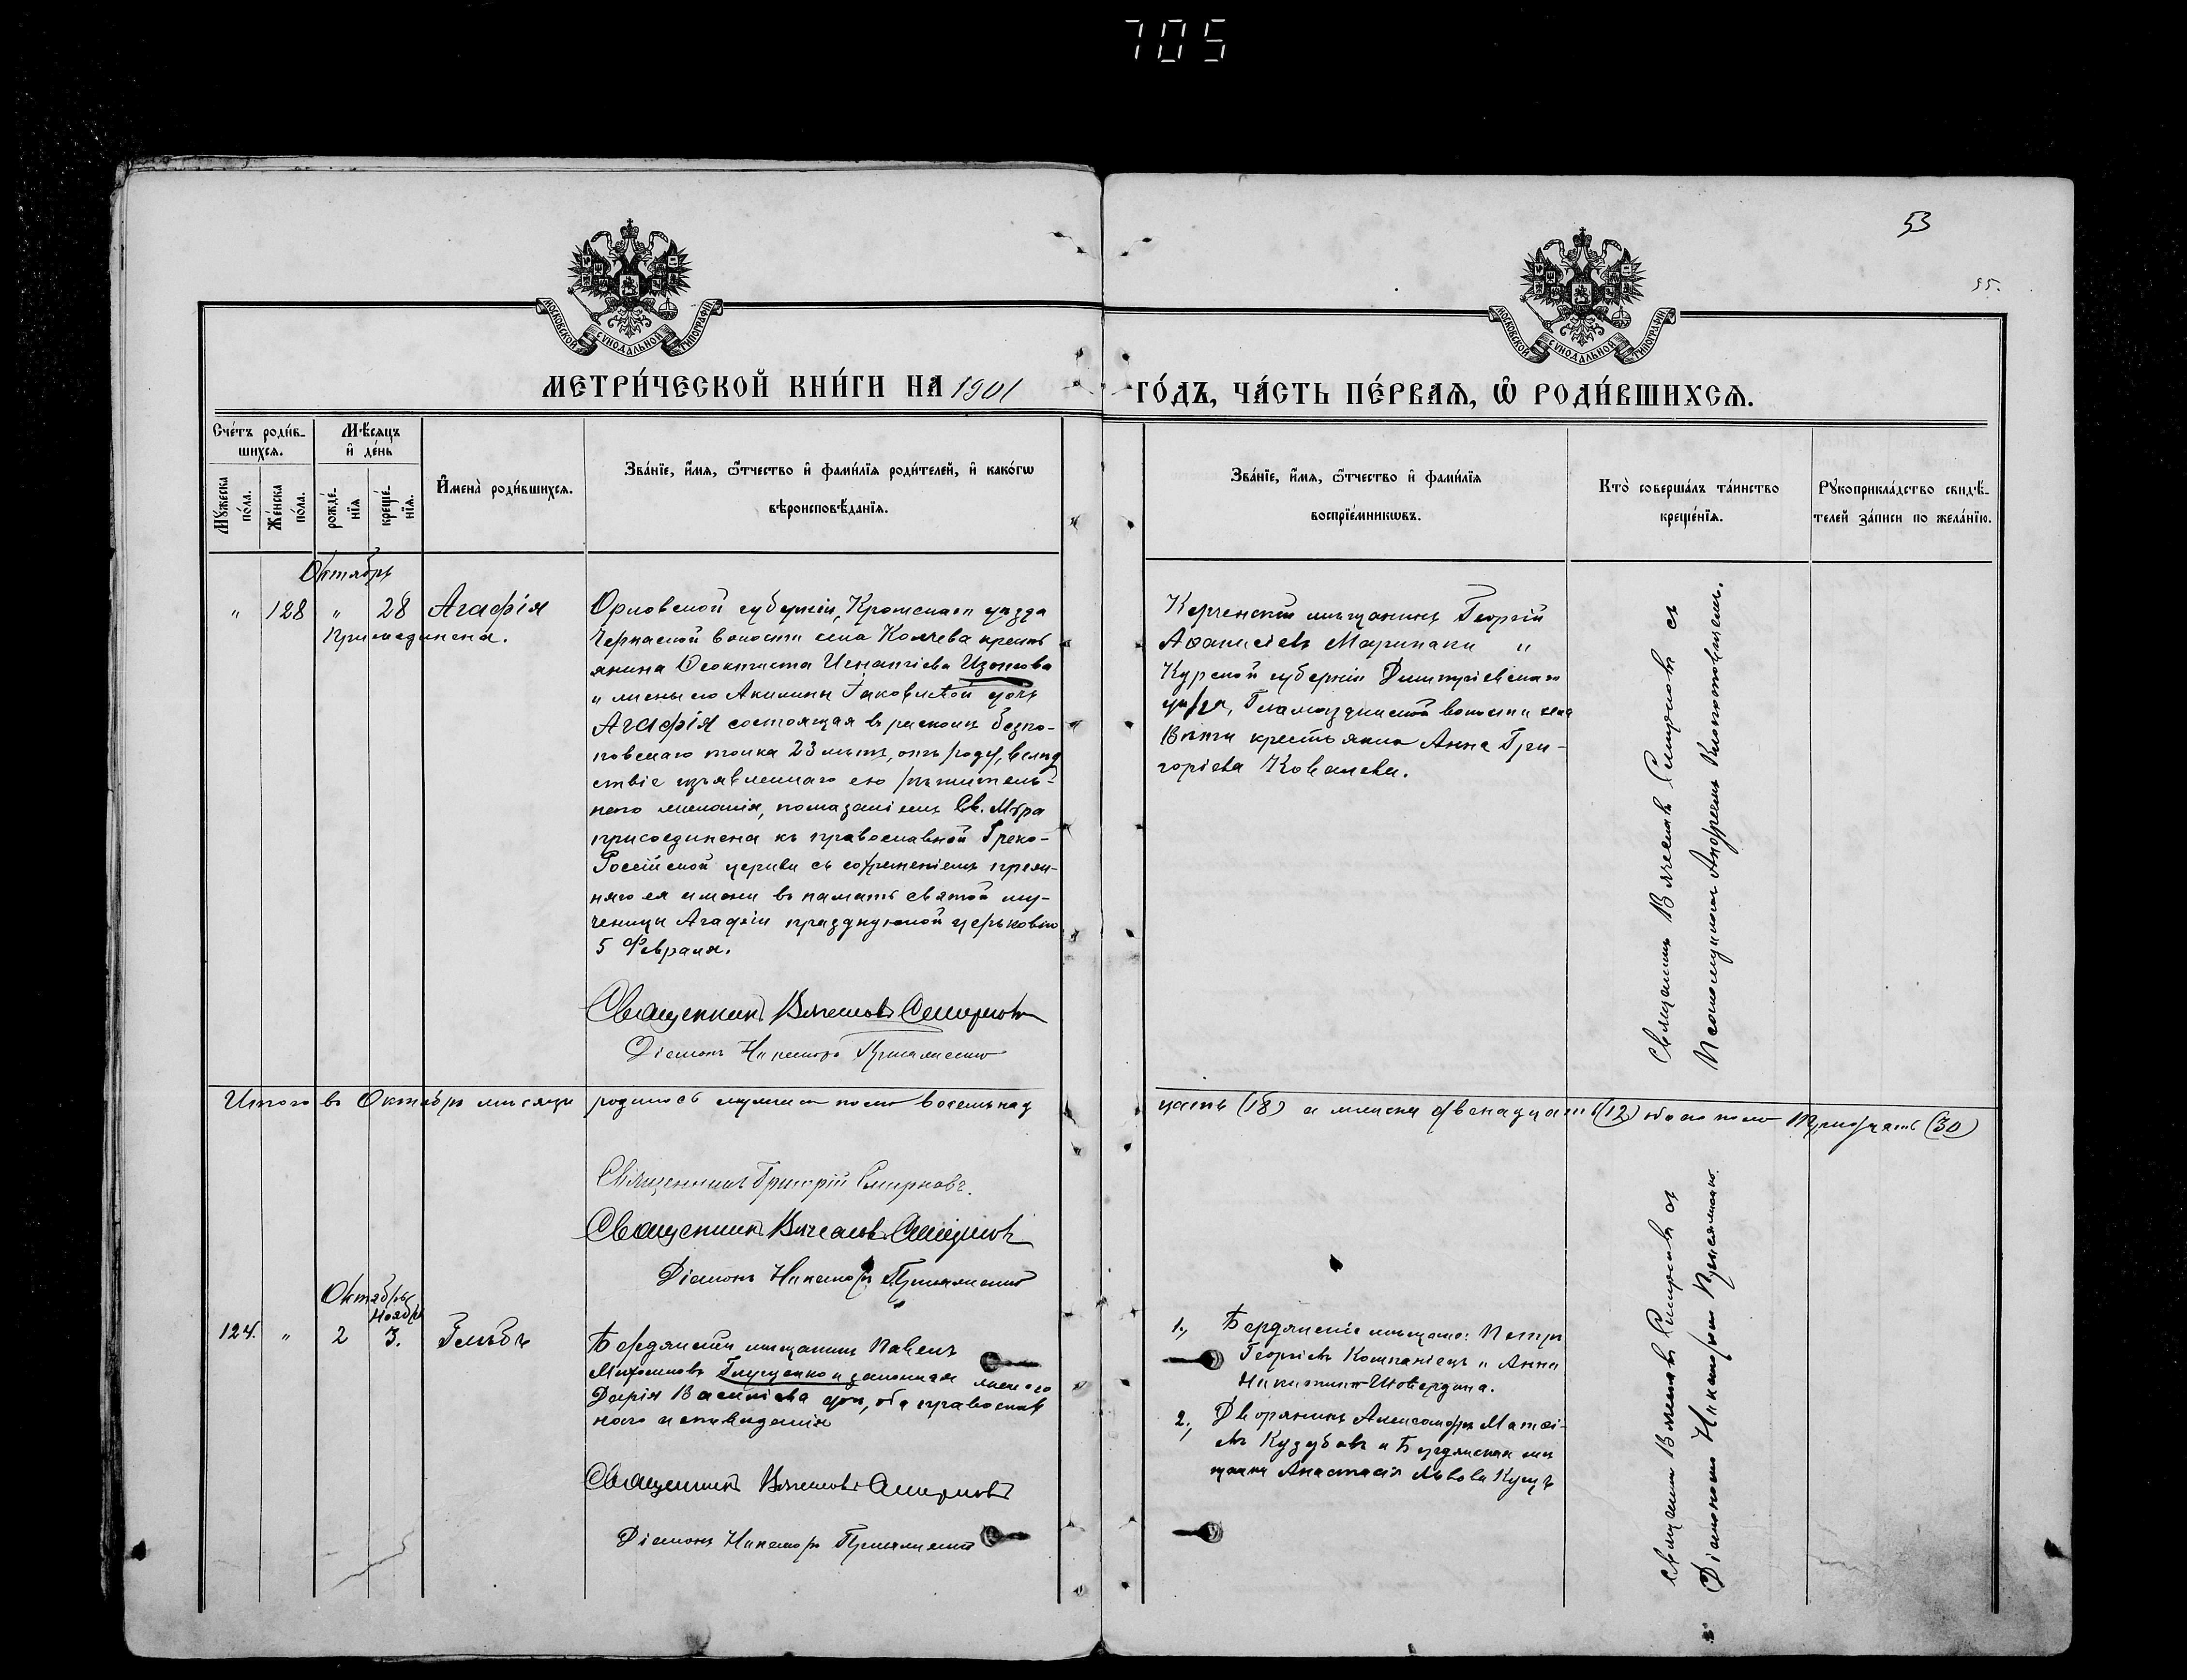 705
53
55.
МОСКОВСКОЙ СѴНОДАЛЬНОЙ ТИПОГРАФІИ
МОСКОВСКОЙ СѴНОДАЛЬНОЙ ТИПОГРАФІИ
МЕТРИ́ЧЕСКОЙ КНИ́ГИ НА 1901
ГО́ДЪ, ЧА́СТЬ ПЕ́РВАѦ, Ѽ РОДИ́ВШИХСѦ.
Сче́тъ роди́в-
шихсѧ.
Мꙋжеска по́ла.
Же́нска по́ла.
Мѣ́сѧцъ
и҆ де́нь
рожде́-
нїѧ
креще́-
нїѧ.
И҆мена̀ роди́вшихсѧ.
Зва́нїе, и҆́мѧ, ѻ҆́тчество и҆ фами́лїѧ роди́телей, и҆ како́гѡ
вѣроисповѣ́данїѧ.
Зва́нїе, и҆́мѧ, ѻ҆́тчество и҆ фами́лїѧ
воспрїе́мникѡвъ.
Кто̀ соверша́лъ та́инство
креще́нїѧ.
Рꙋкоприкла́дство свидѣ́-
телей за́писи по жела́нїю.
Октябрь
" 128 " 28 Агафія
Присоединена.
Орловской губерніи, Кромскаго уѣзда
волости села крестья
янина Ѳеоктиста Игнатіева Изотова
и жены его Акилины Іаковлевой дочь
Агафія состоящая въ расколѣ безпо-
повскаго толка 23 лѣтъ, отъ роду, вслѣд
ствіе изъявленнаго ею рѣшитель-
наго желанія, помазаніемъ Св. Мѵра
присоединена къ православной Греко-
Россійской церкви съ сохраненіемъ преж-
няго ея имени въ память святой му-
ченицы Агафіи празднуемой церковію
5 Февраля.
Священникъ Вячеславъ Смирновъ
Діаконъ Никаноръ
Керченскій мѣщанинъ Георгій
Аѳанасіевъ Маринаки "
Курской губерніи Дмитріевскаго
уѣзда, волости села
крестьянка Анна Гри-
горіева Ковалева.
Священникъ Вячеславъ Смирновъ съ
Псаломщикомъ Андреемъ
Итого въ Октябрѣ мѣсяцѣ родилось мужеска пола восемьнад
цать (18) а женска двенадцать (12) обоего пола тридцать (30)
Священникъ Григорій Смирновъ.
Священникъ Вячеславъ Смирновъ
Діаконъ Никаноръ
Октябрь
Ноябрь
124. " 2 3. Глѣбъ
Бердянскій мѣщанинъ Павелъ
Михаиловъ Глущенко и законная жена его
Дарія Васильева оба православ
наго исповѣданія
Священникъ Вячеславъ Смирновъ
Діаконъ Никаноръ
1., Бердянскіе мѣщане: Петръ
Георгіевъ Компаніецъ и Анна
Никитина
2., Дворянинъ Александръ Матѳі-
евъ Кузубовъ и Бердянская мѣ
щанка Анастасія Львова
Священникъ Вячеславъ Смирновъ съ
Діакономъ Никаноромъ